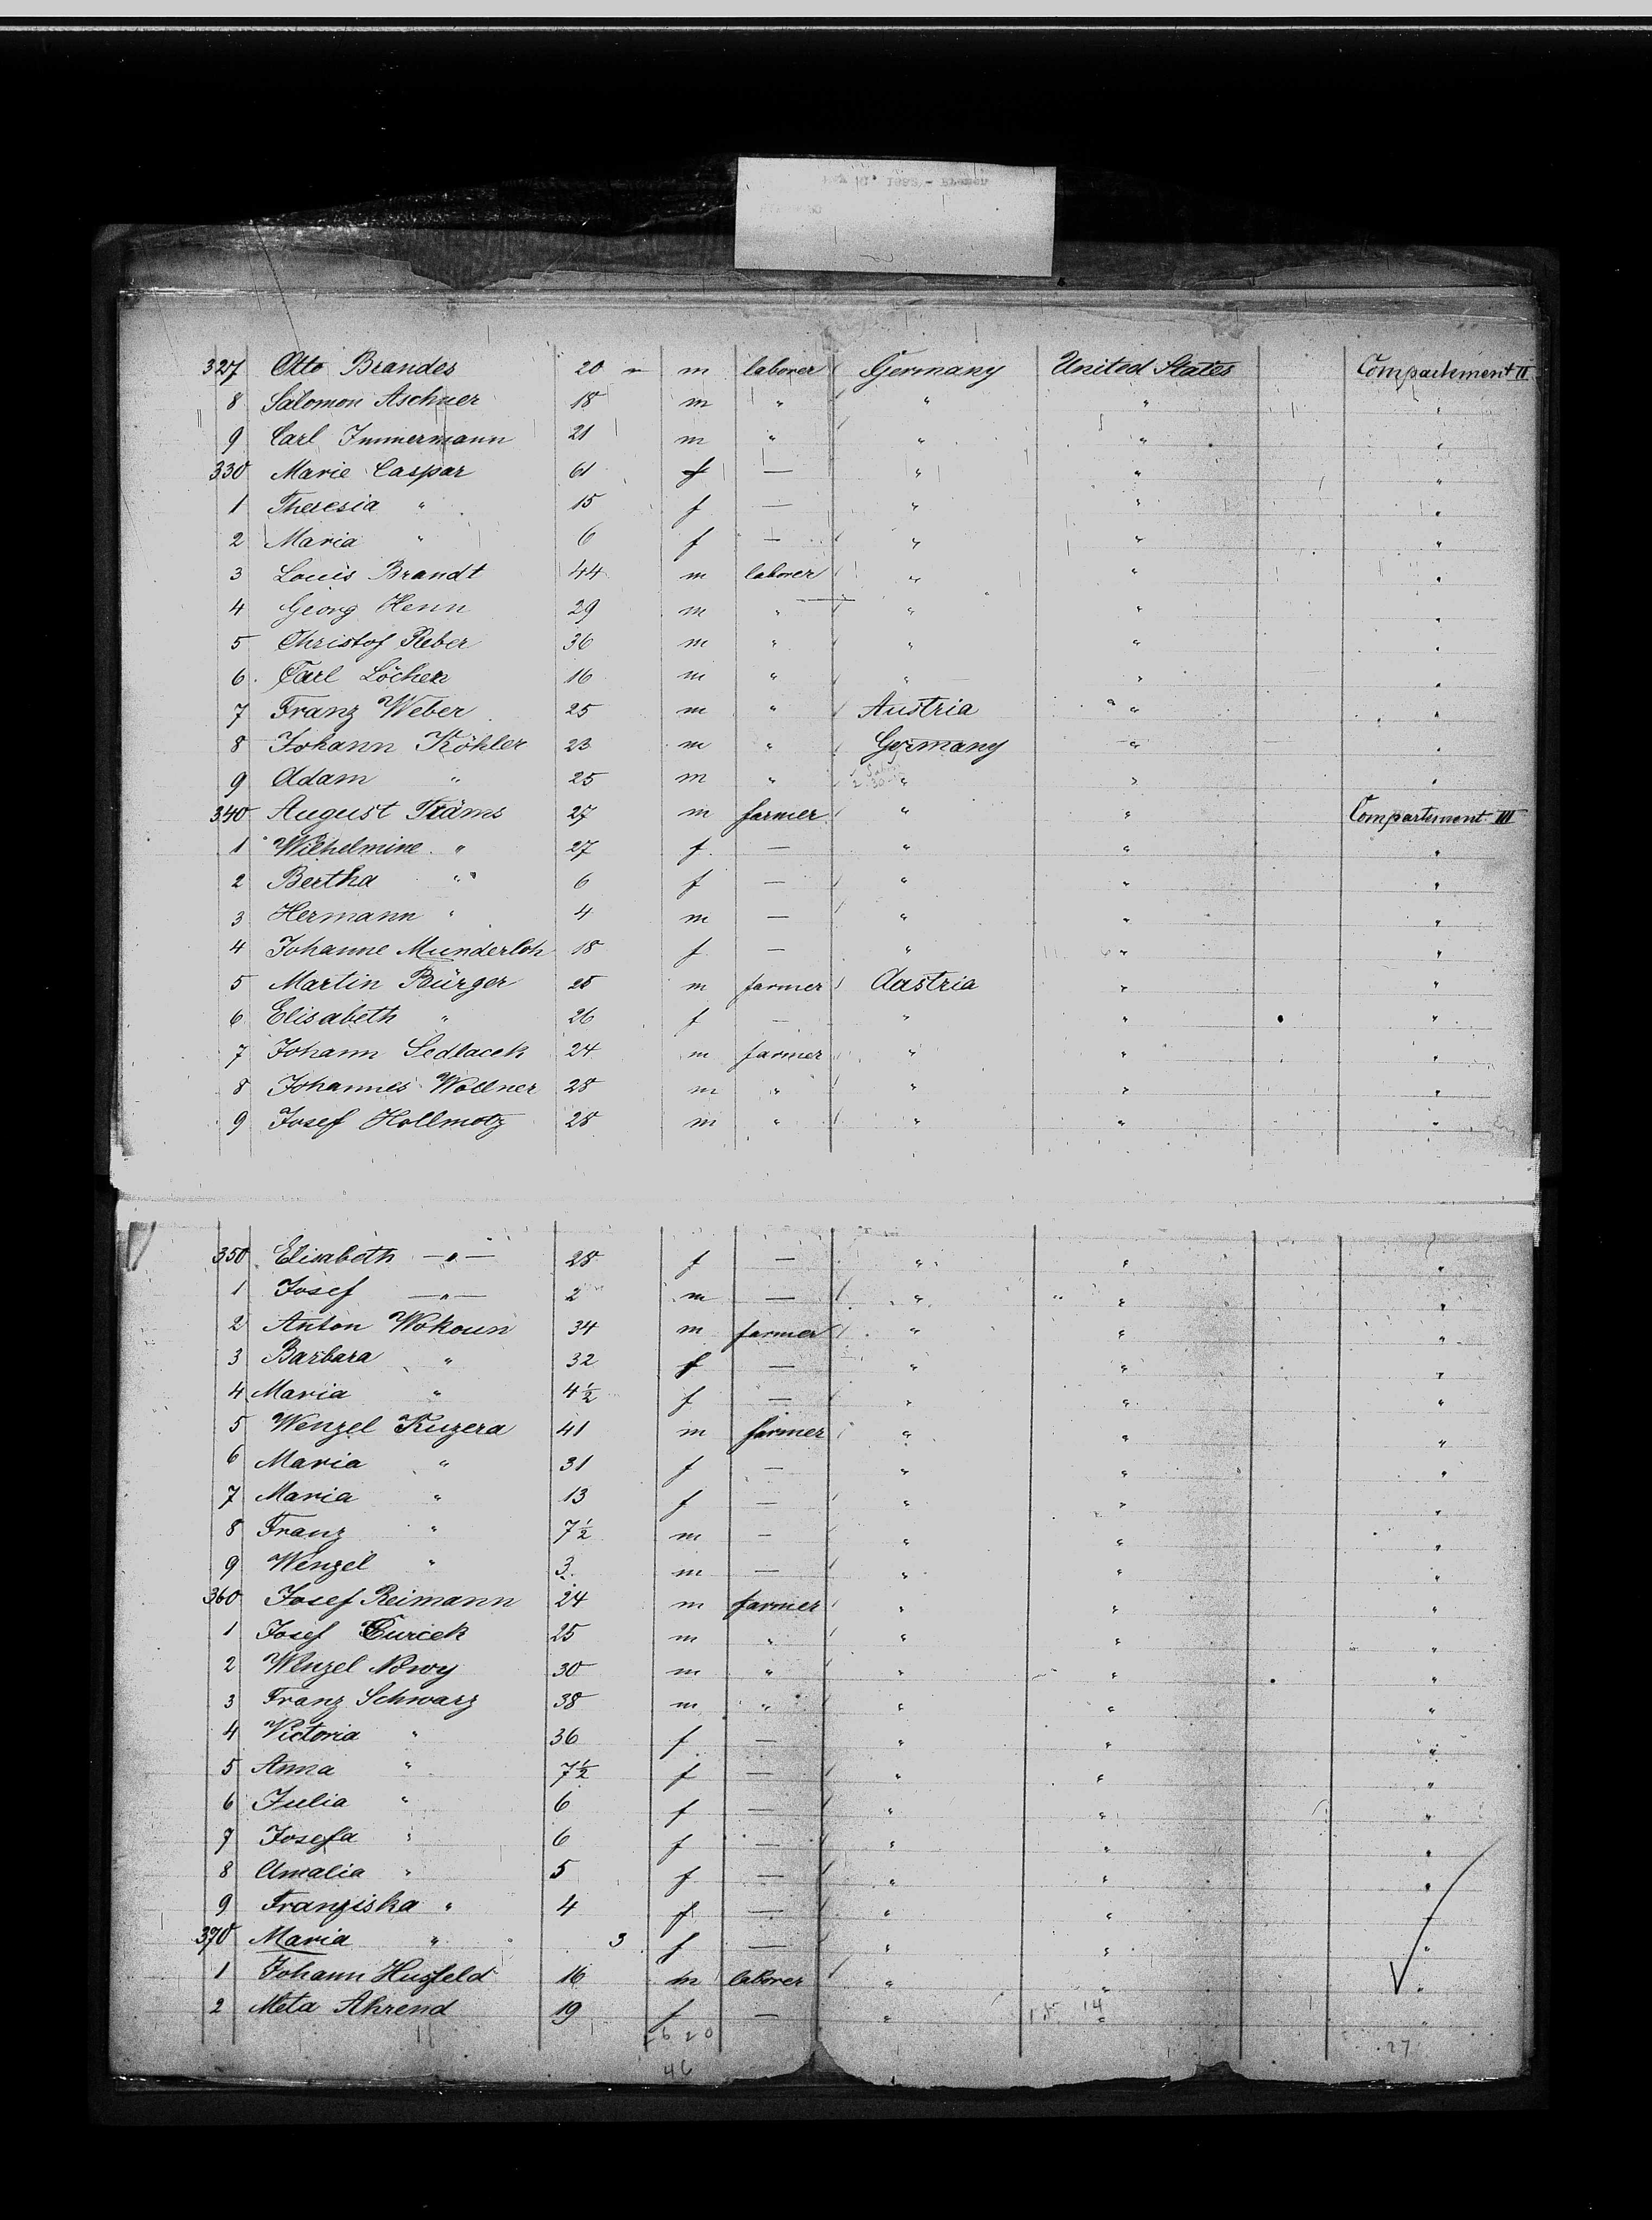 327 Otto Brandes 20 m laborer Germany United States Compartement II
8 Salomon Aschner 18 m " " " "
9 Carl Immermann 21 m " " " "
330 Marie Caspar 61 f — " " "
1 Theresia " 15 f — " " "
2 Maria " 6 f — " " "
3 Louis Brandt 44 m laborer " " "
4 Georg Henn 29 m " " " "
5 Christof Reber 36 m " " " "
6 Carl Löcher 16 m " " " "
7 Franz Weber 25 m " Austria " "
8 Johann Köhler 23 m " Germany " "
9 Adam " 25 m " " " "
340 August Träms 27 m farmer " " Compartement III
1 Wilhelmine " 27 f — " " "
2 Bertha " 6 f — " " "
3 Hermann " 4 m — " " "
4 Johanne Munderloh 18 f — " " "
5 Martin Bürger 25 m farmer Austria " "
6 Elisabeth " 26 f — " " "
7 Johann Sedlacek 24 m farmer " " "
8 Johannes Wollner 28 m " " " "
9 Josef Hollmotz 28 m " " " "
350 Elisabeth —"— 28 f — " " "
1 Josef —"— 2 m — " " "
2 Anton Wokoun 34 m farmer " " "
3 Barbara " 32 f — " " "
4 Maria " 4½ f — " " "
5 Wenzel Kuzera 41 m farmer " " "
6 Maria " 31 f — " " "
7 Maria " 13 f — " " "
8 Franz " 7½ m — " " "
9 Wenzel " 3 m — " " "
360 Josef Reimann 24 m farmer " " "
1 Josef 25 m " " " "
2 Wenzel Nowy 30 m " " " "
3 Franz Schwarz 38 m " " " "
4 Victoria " 36 f — " " "
5 Anna " 7½ f — " " "
6 Julia " 6 f — " " "
7 Josefa " 6 f — " " "
8 Amalia " 5 f — " " "
9 Franziska " 4 f — " " "
370 Maria " 3 f — " " "
1 Johann Husfeld 16 m laborer " " "
2 Meta Ahrend 19 f — " " "
26 20
46
27